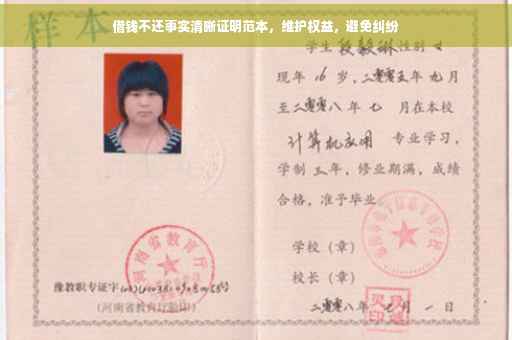 借钱不还事实清晰证明范本，维护权益，避免纠纷
样本
学生 段毅琳 性别 女
现年 16 岁，二零零五年 九 月
至二零零八年 七 月在本校
计算机应用 专业学习，
学制 三 年，修业期满，成绩
合格，准予毕业
学校（章）
校长（章）
二零零八年 月 一 日
河南省教育厅
豫教职专证字
（河南省教育厅验印）